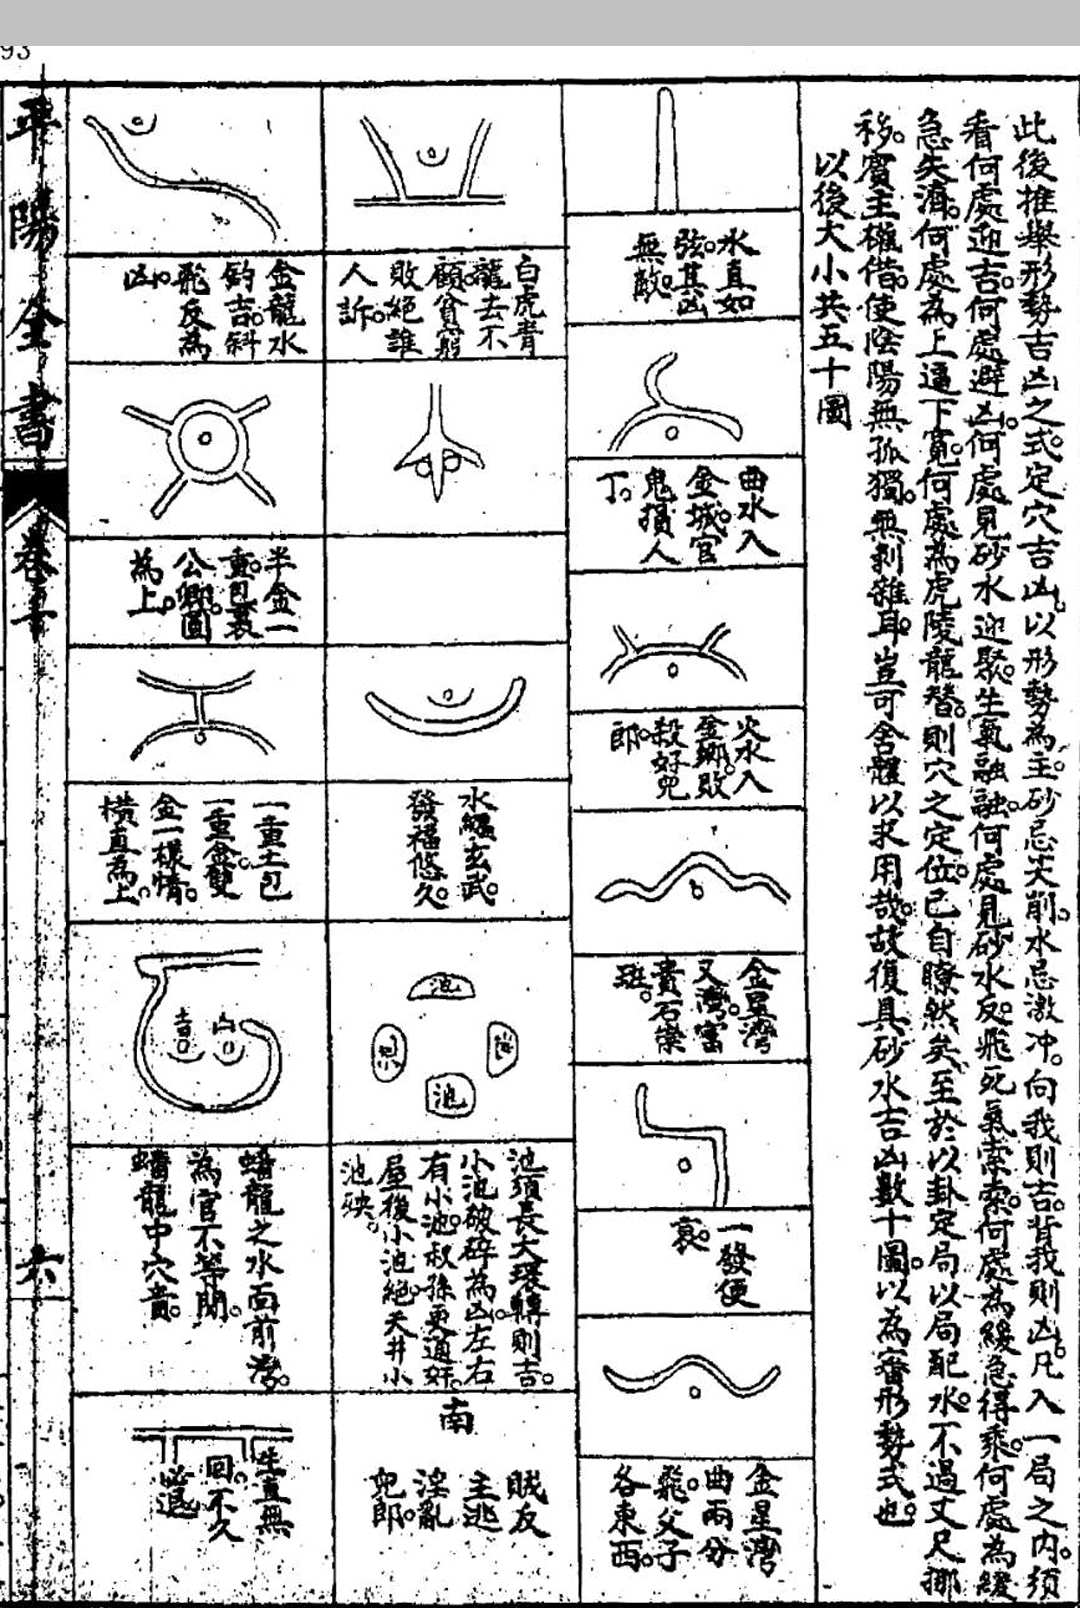 此後推舉形勢吉凶之式定穴吉凶以形勢為主砂忌尖削水忌激冲向我則吉背我則凶凡入一局之內須
看何處迎吉何處避凶何處見砂水迎聚生氣融融何處見砂水反飛死氣索索何處為緩急得乘何處為緩
急失濟何處為上逼下寬何處為虎陵龍替則穴之定位已自瞭然矣至於以卦定局以局配水不過丈尺挪
移賓主權借使陰陽無孤獨無剥雜耳豈可舍體以求用哉故復具砂水吉凶數十圖以為審形勢式也
以後大小共五十圖
水直如
弦其凶
無敵
曲水入
金城官
鬼損人
丁
火水入
金鄉敗
殺好兇
郎
金星灣
又灣富
貴石崇
班
一發便
衰
金星灣
曲兩分
飛父子
各東西
白虎青
龍去不
顧貧窮
敗絕誰
人訴
水繞玄武
發福悠久
池
池
池須長大環轉則吉
小池破碎為凶左右
有小池叔孫更通奸
屋後小池絕天井小
池殃
南
賊反
主逃
淫亂
兇郎
金龍水
鈎吉斜
飛反為
凶
半金一
重包裹
公卿圓
為上
一重土包
一重金雙
金一樣情
橫直為上
吉
凶
蟠龍之水面前灣
為官不等閒
蟠龍中穴音
生直無
回不久
退
平陽全書
卷十
六
93